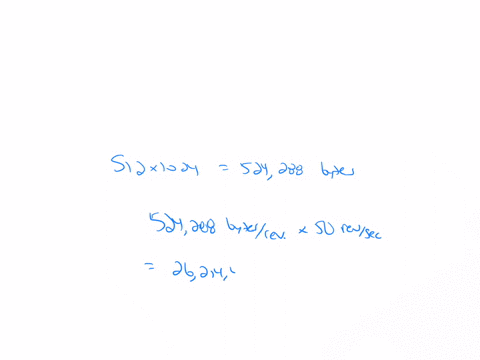 512 × 1024 = 524,288 bytes
524,288 bytes/rev. × 50 rev/sec
= 26,214,